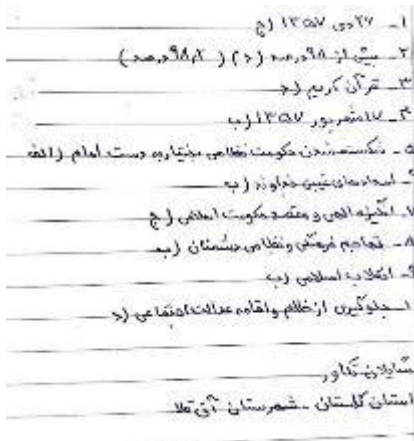 ۱- ۲۷ دی ۱۳۵۷ (ج
۲- بیش از ۹۸ درصد (د) (۹۸٫۲ درصد)
۳- قرآن کریم (د
۴- ۱۷ شهریور ۱۳۵۷ (ب
۵- شکسته شدن حکومت نظامی بختیار به دست امام (الف
۶- امدادهای غیبی خداوند (ب
۷- انگیزه الهی و مقصد حکومت اسلامی (ج
۸- تهاجم فرهنگی و نظامی دشمنان (ب
۹- انقلاب اسلامی (ب
۱- جلوگیری از ظلم و اقامه عدالت اجتماعی (د
استان گلستان - شهرستان آق قلا